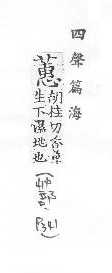 四聲篇海
蕙
胡桂切香草
生下濕地也
(艸部,
P341)